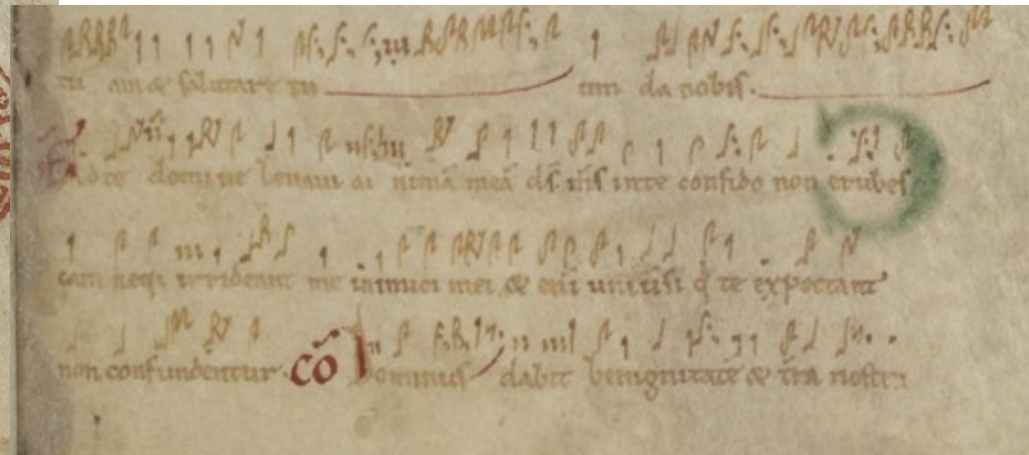 tu am & salutare tu um da nobis.
Ad te domine levavi ani mā meā ds̄ m̄s in te confido non erubes
cam neq; irrideant me inimici mei & eni universi q̄ te expectant
non confundentur. cō Dominus dabit benignitatē & t̄ra nostra